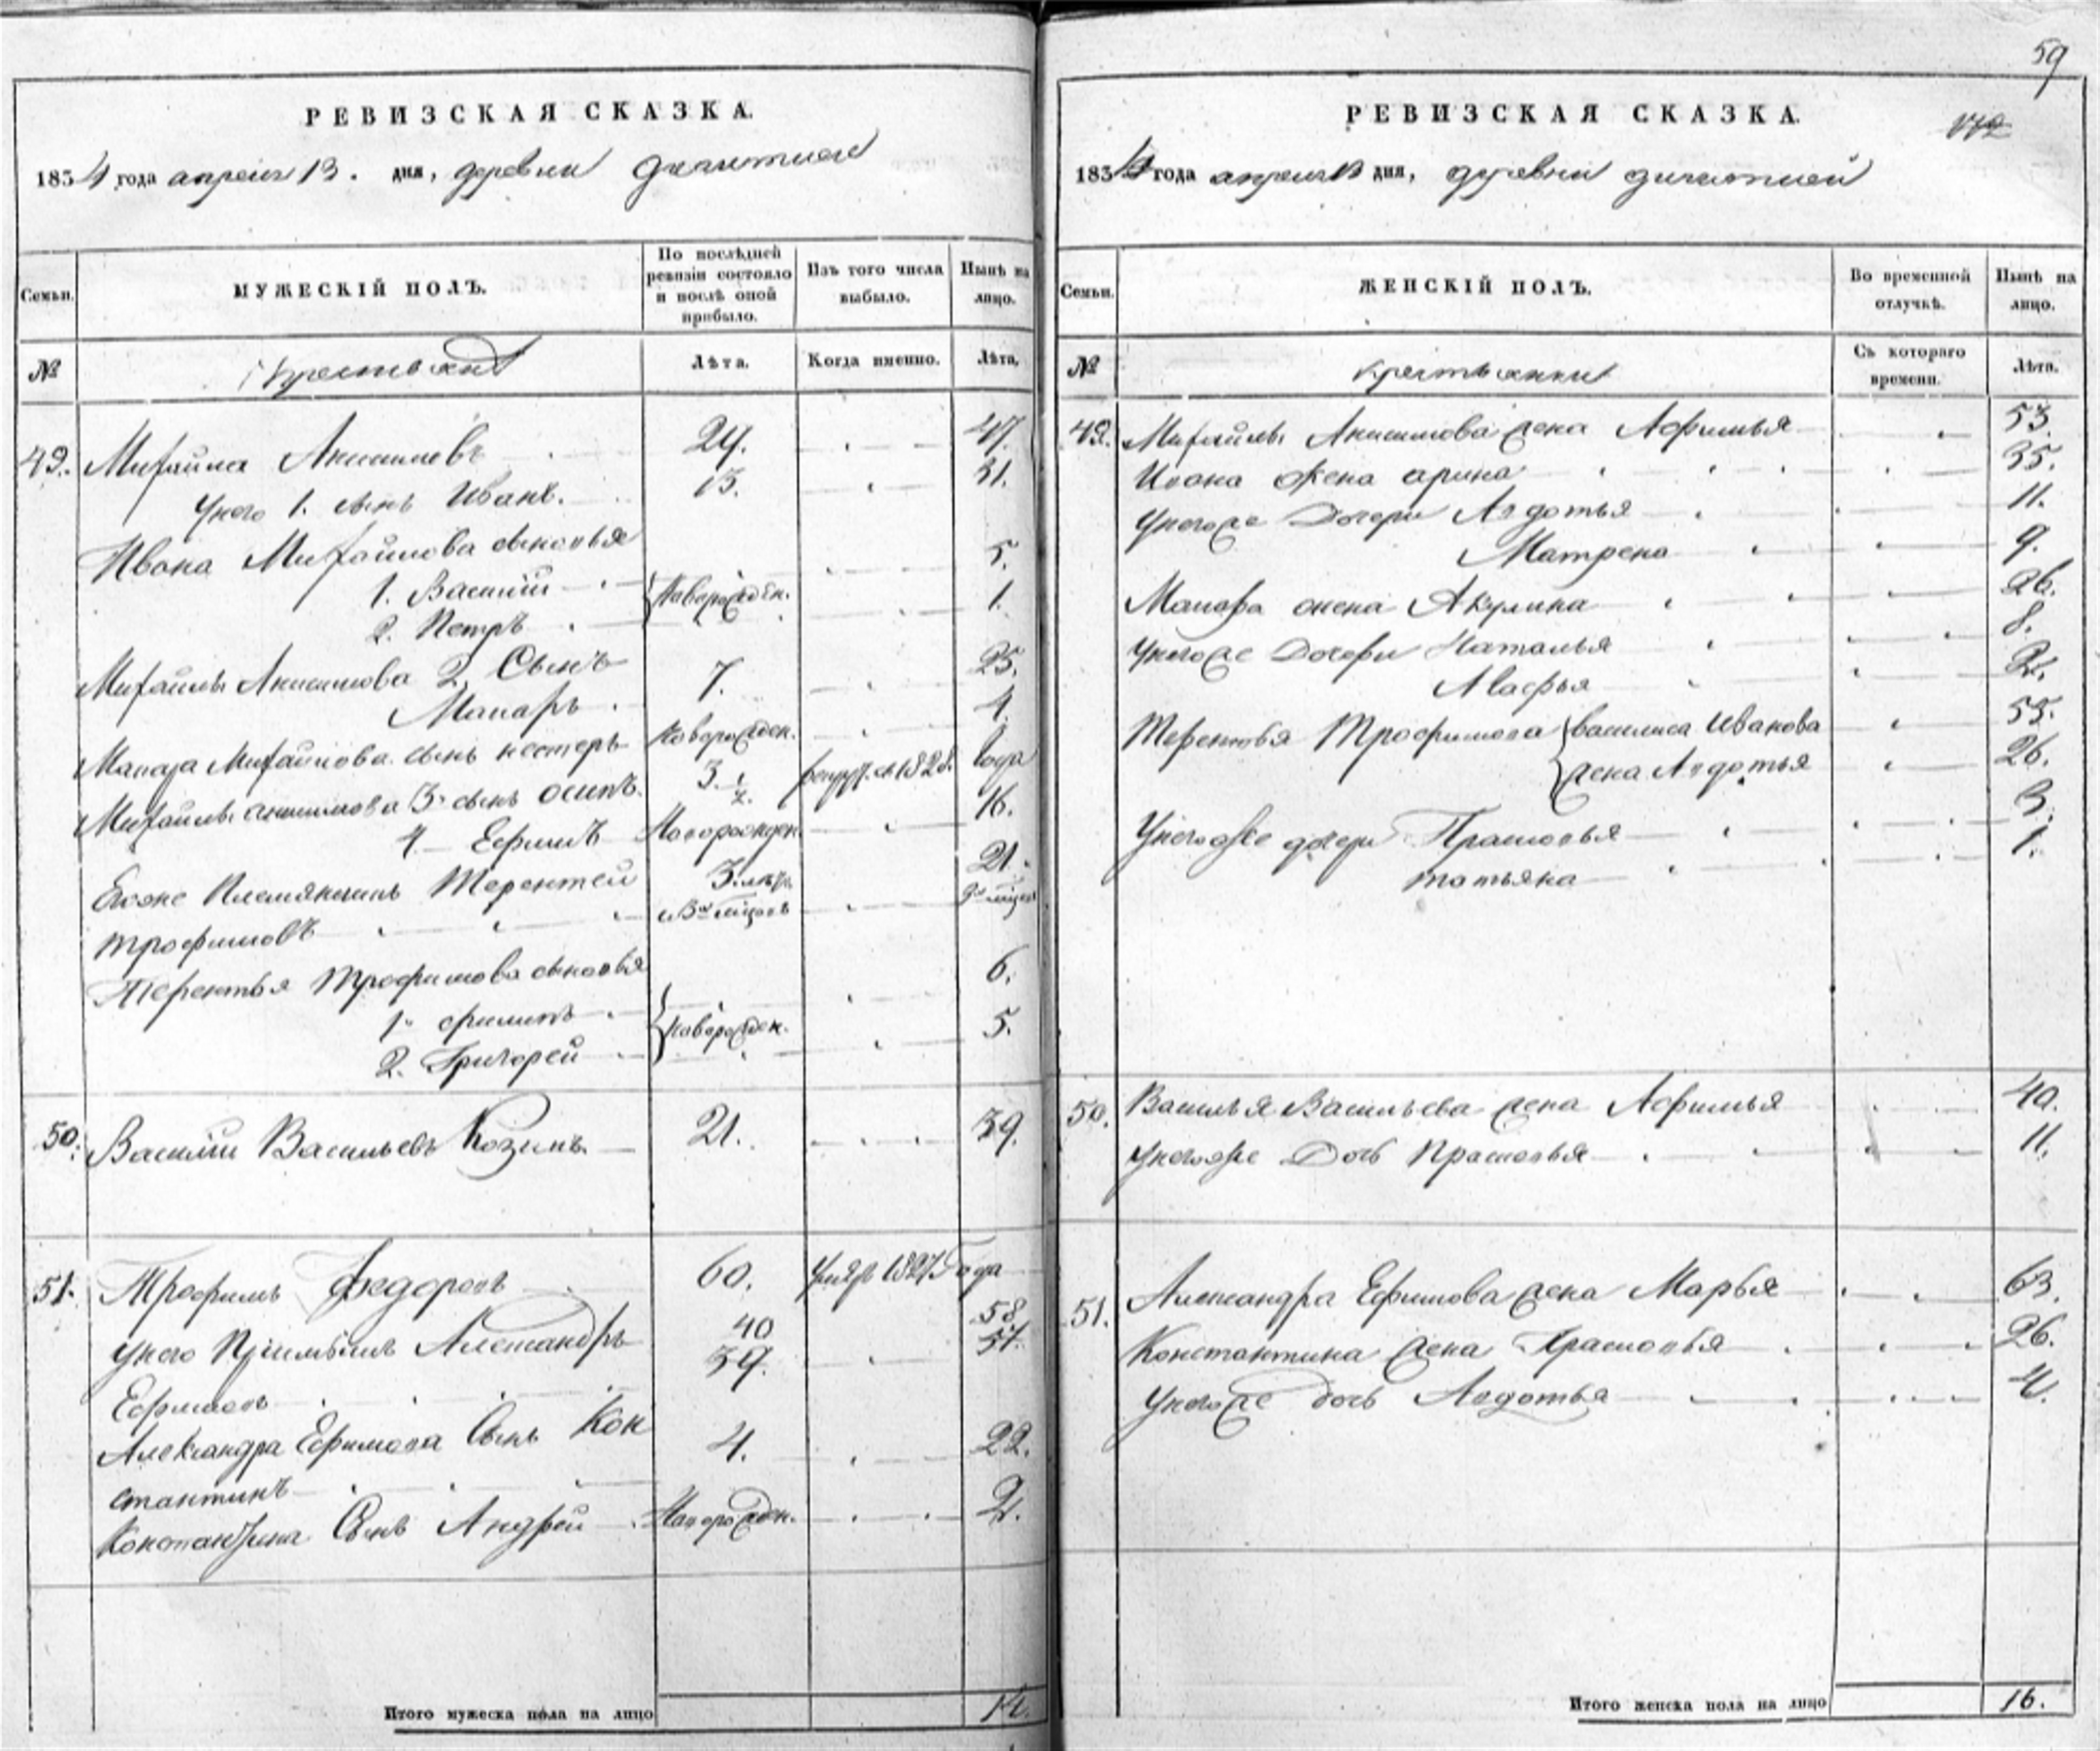 РЕВИЗСКАЯ СКАЗКА.
1834 года апреля 13. дня, деревни
Семьи.
МУЖЕСКІЙ ПОЛЪ.
По послѣдней ревизіи состояло и послѣ оной прибыло.
Изъ того числа выбыло.
Нынѣ на лицо.
№
Крестьяне
Лѣта.
Когда именно.
Лѣта.
49. Михайла Анисимовъ 24. 47.
У него 1. сынъ Иванъ. 13. 31.
Ивана Михайлова сыновья
1. Василий 5.
Новорожден.
2. Петръ 1.
Михайлы Анисимова 2. Сынъ 7. 25.
Макаръ
Макара Михайлова сынъ нестеръ новорожден. 4.
Михайлы анисимова 3. сынъ осипъ. 3. 1/2. рекрут. в 1828. года
4. Ефимъ Новорожден. 16.
Егоже Племянникъ Терентей 3. 21.
трофимовъ
Терентья Трофимова сыновья
1. филипъ 6.
новорожден.
2. Григорей 5.
50. Василий Васильевъ Козинъ 21. 39.
51. Трофимъ Федоровъ 60. умер 1827 Года
40 58
У него Приимышъ Александръ 39. 57.
Ефимовъ
Александра Ефимова Сынъ Кон 4. 22.
стантинъ
Константина Сынъ Андрей Новорожден. 2.
Итого мужеска пола на лицо 14.
59
РЕВИЗСКАЯ СКАЗКА.
1834 года апреля 13 дня, деревни
Семьи.
ЖЕНСКІЙ ПОЛЪ.
Во временной отлучкѣ.
Нынѣ на лицо.
№
крестьянки
Съ котораго времени.
Лѣта.
49. Михайлы Анисимова жена Афимья 53.
Ивана жена арина 35.
У негоже Дочери Авдотья 11.
Матрена 9.
Макара жена Акулина 26.
У негоже Дочери Наталья 8.
2.
Терентья Трофимова василиса Иванова 55.
жена Авдотья 26.
У негоже дочери Прасковья 3.
татьяна 1.
50. Василья Васильева жена Афимья 40.
У негоже Дочь Прасковья 11.
51. Александра Ефимова жена Марья 63.
Константина жена Прасковья 26.
У негоже дочь Авдотья 4.
Итого женска пола на лицо 16.